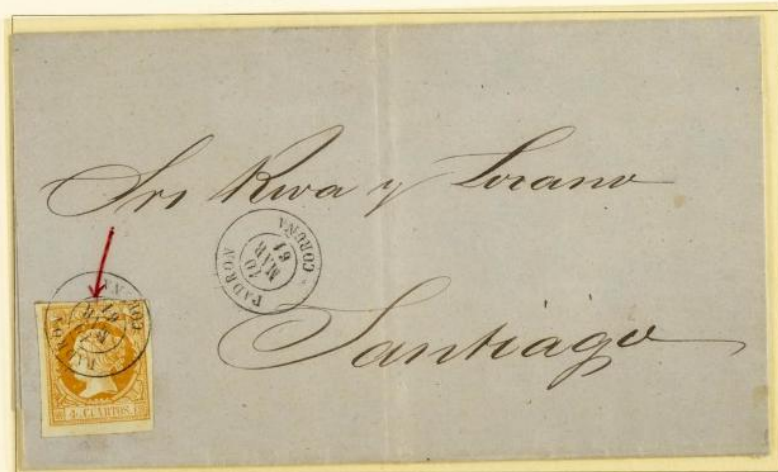 Srs Riva y Lozano
PADRON
10
MAR
61
CORUÑA
Santiago
PADRON
MAR
61
4 CUARTOS.